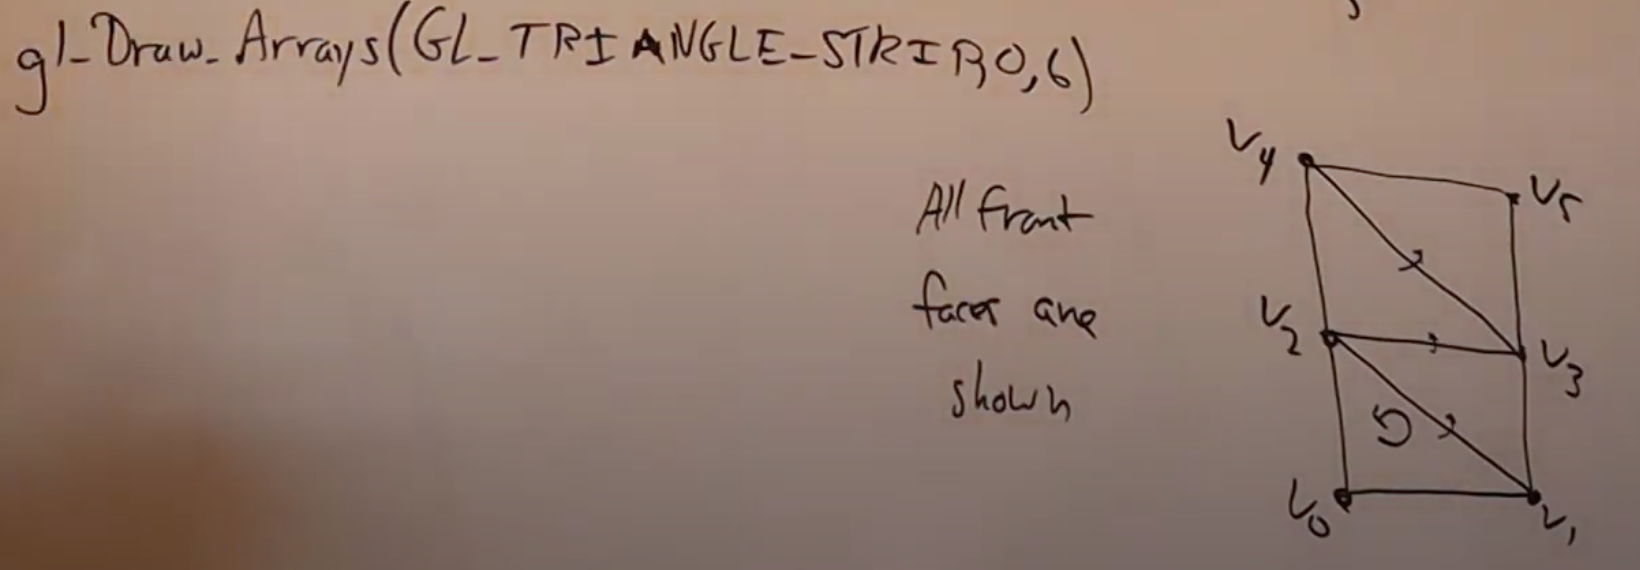 gl_Draw_Arrays(GL_TRIANGLE_STRIP,0,6)
All front
faces are
shown
V4
V5
V2
V3
V0
V1